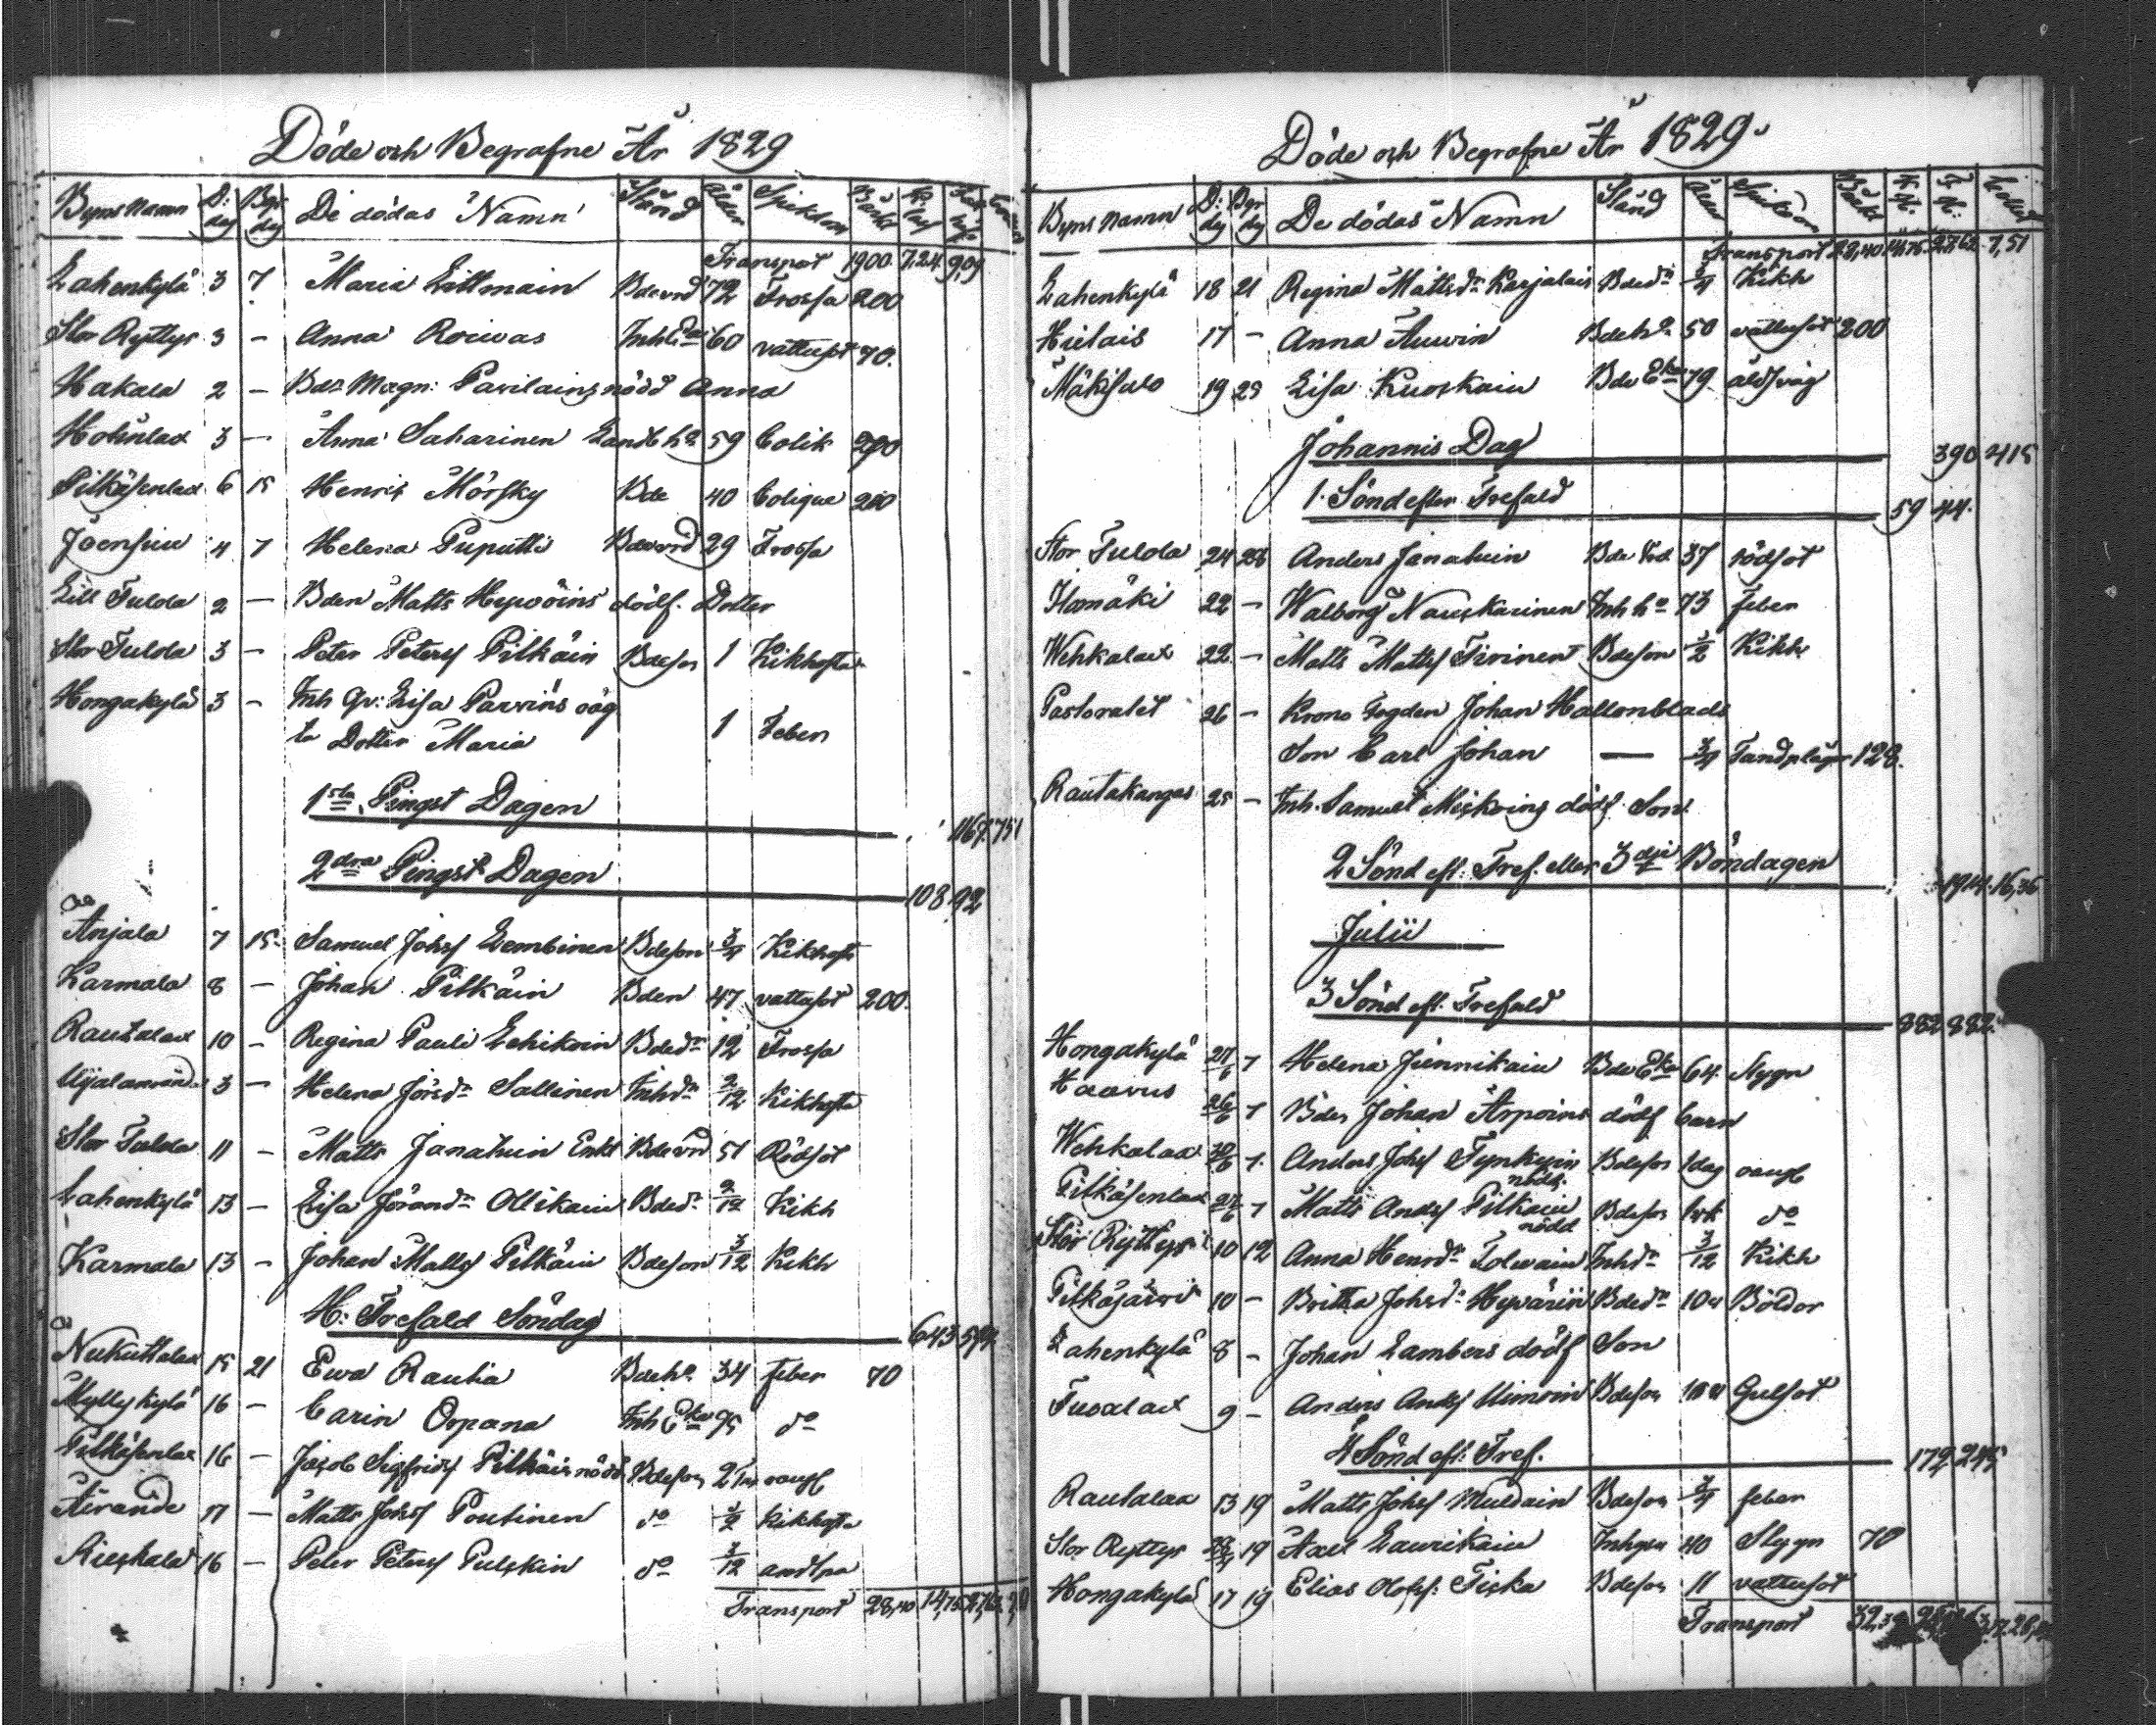 Döde och Begrafne År 1829
Byns Namn D: dg Bgr dg De dödas Namn Stånd Ålder Sjukdom
Transport 1900. 7,24. 9,09
Lahenkylä 3 7 Maria Littmain Bdevrd 72 Trossa 200
Stor Ryttyr 3 - Anna Roiwas 60 vattusot 70.
Hakala 2 - Bds Magn: Pavilains nödd Anna
3 - Anna Saharinen Landb hu 59 Colik 200
Pitkäsenlax 6 15 Henrik Mörsky Bde 40 Colique 200
Joensuu 4 7 Helena Puputti Bdevrd 29 Trossa
Lill Fulda 2 - Bden Matts Hywöins dödf. Dotter
Stor Fulda 3 - Peter Petersf Pitkäin Bdeson 1 Kikhosta
Hongakylä 3 - Inh Qv: Lisa Parvins oäg
ta Dotter Maria 1 Feber
1sta Pingst Dagen
1167. 751
2dra Pingst Dagen
108 92
Anjala 7 15 Samuel Johsf Lembinen Bdeson 3/4 Kikhosta
Karmala 8 - Johan Pitkäin Bden 47 vattusot 200.
Rautalax 10 - Regina Pauli Lehikoin Bdedr 12 Trossa
3 - Helena Jörsdr Sallinen Inhdr 2/12 Kikhosta
Stor Fulda 11 - Matts Janatuin Enkl Bdevrd 51 Rödsot
Lahenkylä 13 - Lisa Jörandr Ollikain Bdedr 2/12 Kikh
Karmala 13 - Johan Mattsf Pitkäin Bdeson 3/12 Kikh
H: Trefald Söndag
643
Nukuttalax 15 21 Ewa Rautia Bdehu 34 feber 70
Myllykylä 16 - Carin Orpana Inh Eka 75 do
Pitkäsenlax 16 - Jacob Sigfridsf Pitkäin nödd. Bdeson 2
17 - Matts Johsf Poutinen do 1/2 Kikhosta
16 - Peter Petersf Pulskin do 3/12 andtpa
Transport 28,40 14,75 27,62
Döde och Begrafne År 1829.
Byns namn D: dg Bgr dg De dödas Namn Stånd Ålder Sjukdom
Transport 28,40 14,75. 27,62. 7,51
Lahenkylä 18 21 Regina Mattsdr Karjalais Bdedr 3/4 Kikh
Hielais 17 - Anna Auvin Bdehu 50 vattusot 200
Mäkisalo 19 23 Lisa Kuoskain Bde Eka 79 åldsväg
Johannis Dag
390 415
1. Sönd efter Trefald
59 44.
Stor Fulda 24 28 Anders Janatuin 37 rödsot
Ilomäki 22 - Walborg Nauskarinen Inh hu 73 feber
Wehkalax 22 - Matts Mattsf Tirinen Bdeson 1/2 Kikh
Pastoratet 26 - Krono Fogden Johan Hallonblads
Son Carl Johan — 3/4 Tandplågor 128.
Rautakangas 25 - Inh. Samuel Miskoins dödf. Son.
2 Sönd eft: Tref. eller 3dje Böndagen
1914. 16,36
Julii
3 Sönd eft. Trefald
882 882.
Hongakylä 27/6 7 Helena Junnikain Bde Eka 64. Stygn
Haavus 26/6 7 Bdes Johan Arpoins dödf barn
Wehkalax 30/6 7. Anders Johsf Tynkyin nödd. Bdeson 1 dag
Pitkäsenlax 27/6 7 Matts Andsf Pitkäin nödd Bdeson do
Stor Ryttyr 10 12 Anna Henrdr Tolwain Inhdr 3/12 Kikh
Pitkäjärvi 10 - Britha Johsdr Hyvärin Bdedr 10 Böldor
Lahenkylä 8 - Johan Lambers dödf Son
Tuoalax 9 - Anders Andsf Uimoin Bdeson Gulsot
4 Sönd eft: Tref.
179 245
Rautalax 13 19 Matts Johsf Muldain Bdeson 3/4 feber
Stor Ryttyr 19 Axel Laurikain 40 Stygn 70
Hongakylä 17 19 Elias Olofsf: Tiska Bdeson 11 vattusot
Transport